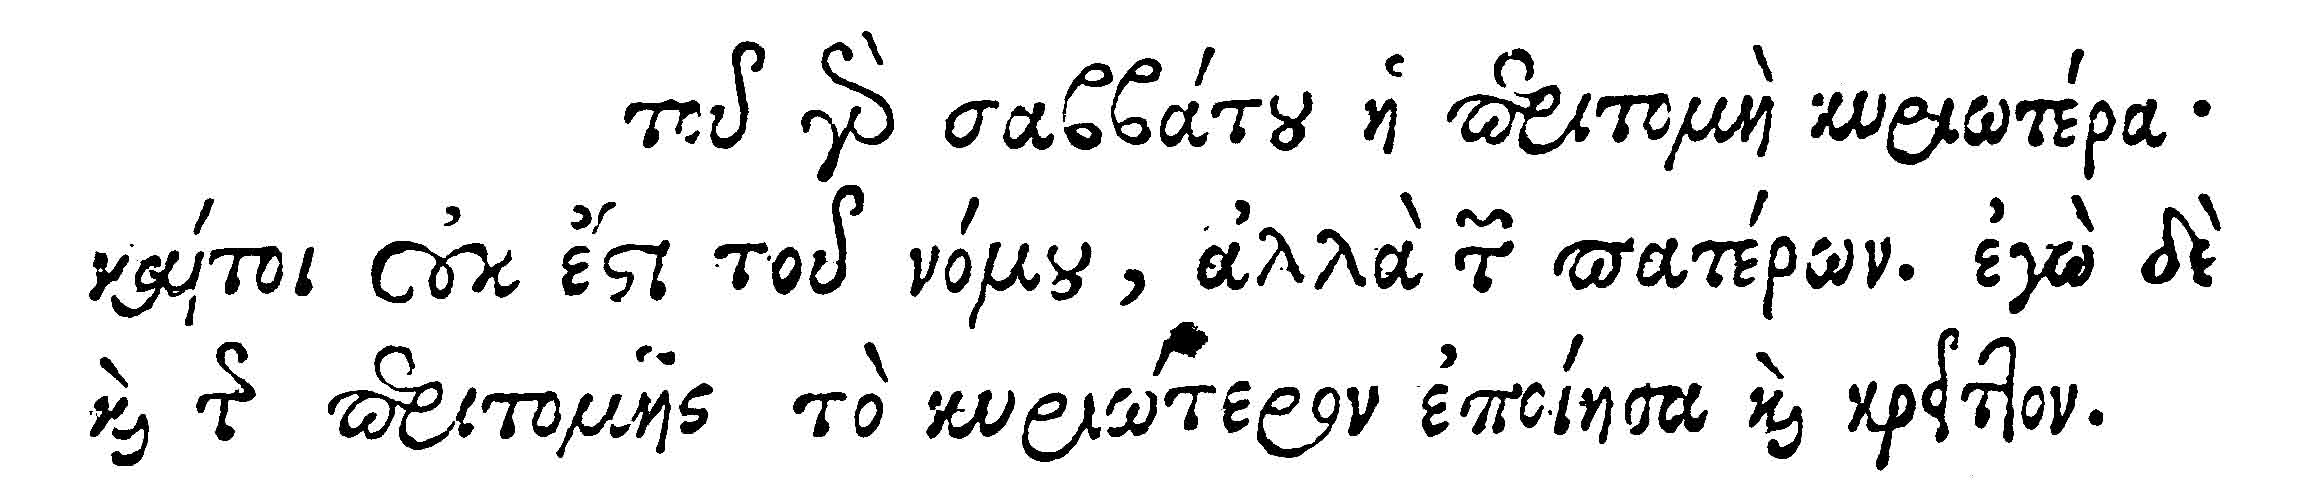 τοῦ γὰρ σαββάτου ἡ περιτομὴ κυριωτέρα·
καίτοι οὐκ ἔστι τοῦ νόμου, ἀλλὰ τῶν πατέρων. ἐγὼ δὲ
καὶ τῆς περιτομῆς τὸ κυριώτερον ἐποίησα καὶ κρεῖττον.